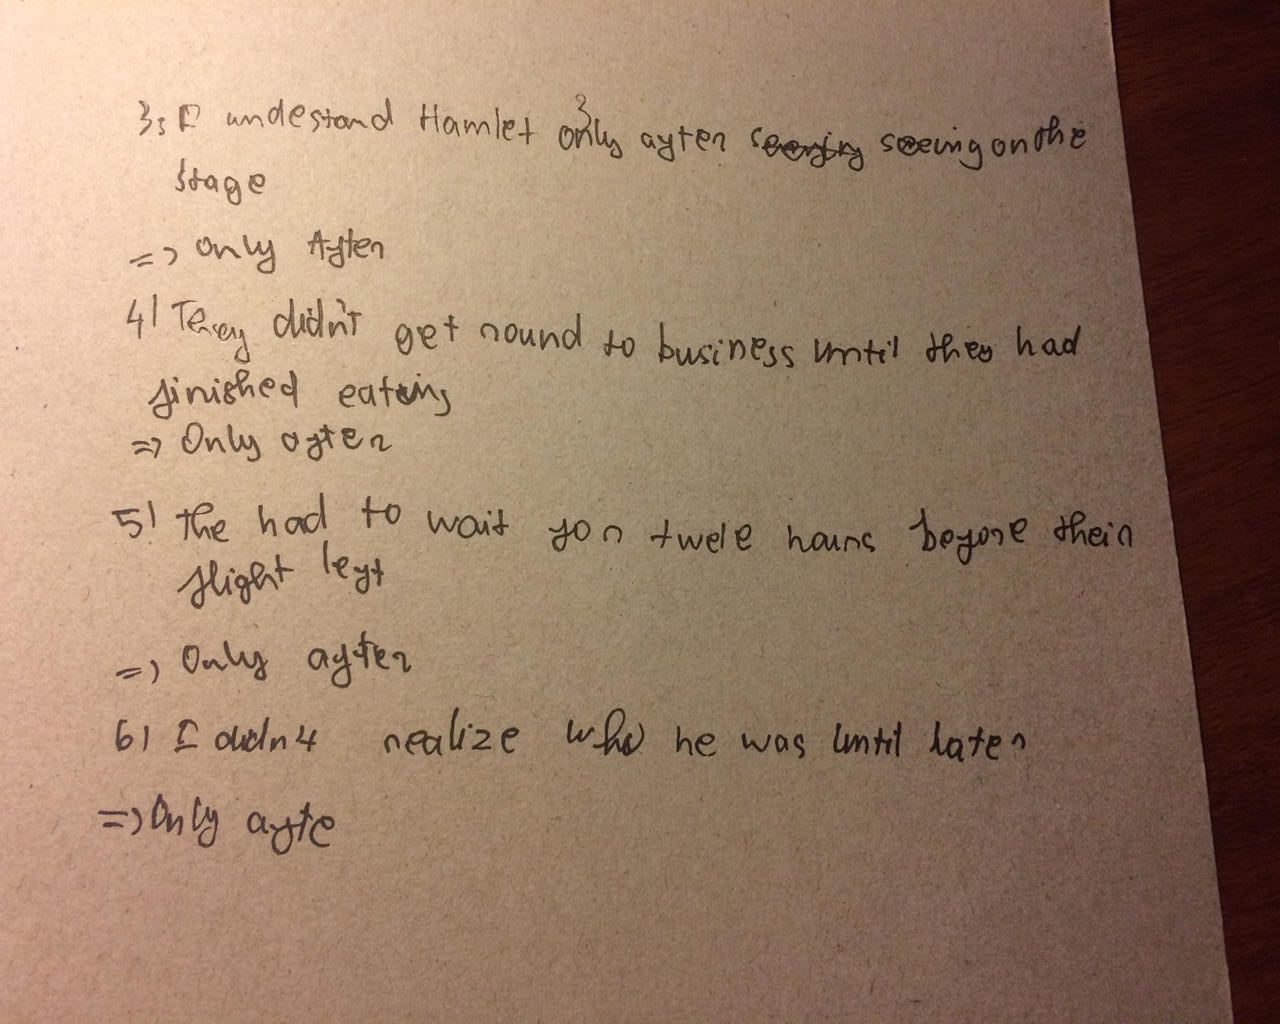 3, I undestand Hamlet only after seeing on the
stage
=> Only After
4/ They didn't get round to business until they had
finished eating
=> Only after
5/ The had to wait for twele hours before their
flight left
=> Only after
6/ I didn4 realize who he was until later
=> Only afte